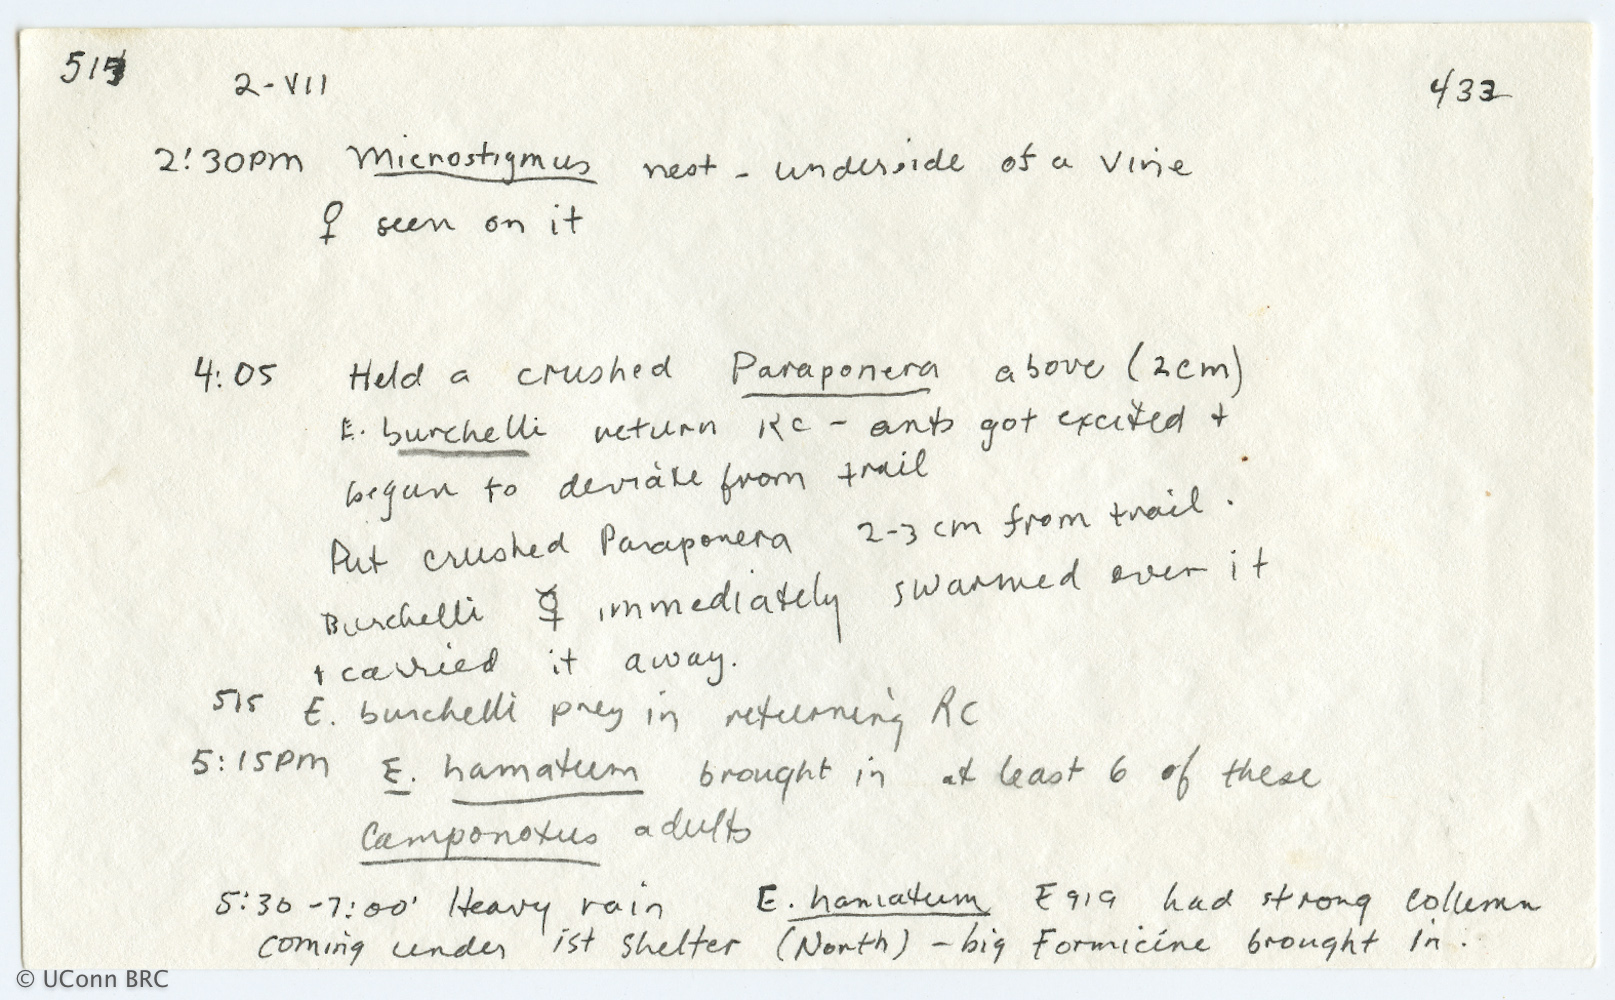 2-VII
433
2:30pm Microstigmus nest - underside of a vine
♀ seen on it
4:05 Held a crushed Paraponera above (2cm)
E. burchelli return RC - ants got excited +
began to deviate from trail
Put crushed Paraponera 2-3 cm from trail.
Burchelli ☿ immediately swarmed over it
+ carried it away.
515 E. burchelli prey in returning RC
5:15pm E. hamatum brought in at least 6 of these
Camponotus adults
5:30-7:00' Heavy rain E. hamatum E919 had strong collumn
coming under 1st shelter (North) - big Formicine brought in.
© UConn BRC